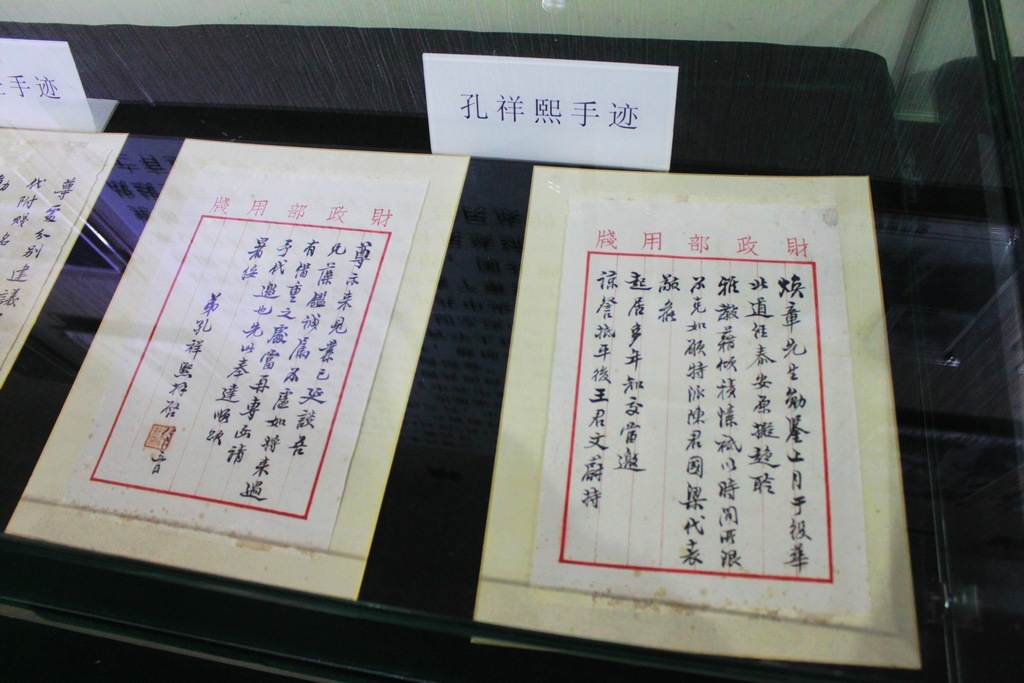 手迹
孔祥熙手迹
財政部用牋
煥章先生勛鑒上月于役華
北道任泰安原擬趨聆
雅教藉傾積愫祗以時間所限
不克如願特派陳君國梁代表
敬候
起居多年知交當邀
諒詧抵平後王君文蔚持
財政部用牋
尊示来見業已延談吾
兄藻鑑誠屬不虛如將来遇
有借重之處當再專函請
予代邀也先此奉達順頌
暑綏
弟孔祥熙拜啓
尊處分别建議
代附賤名